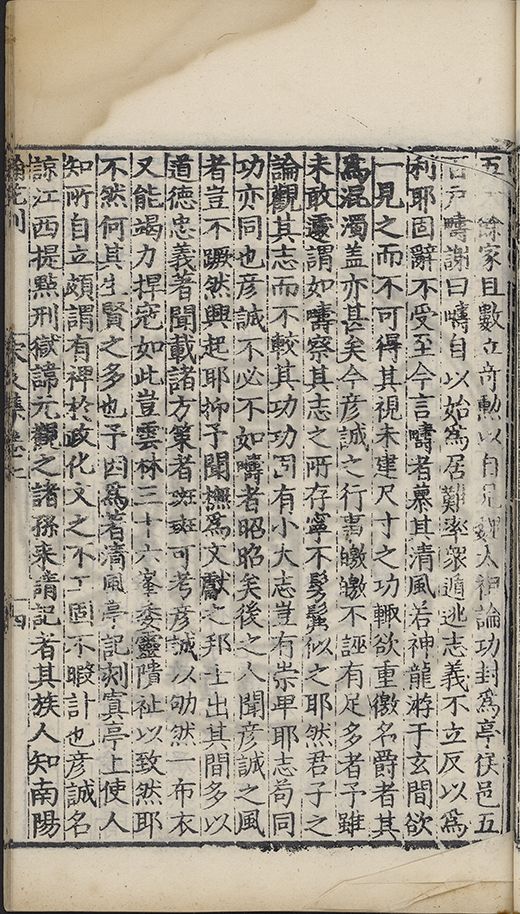 五 餘家且數立奇勲以自見 太祖論功封為亭侯邑五
百戸疇謝曰疇自以始為居難率衆遁逃志義不立反以為
利耶固辭不受至今言疇者慕其清風若神龍游于玄間欲
一見之而不可得其視未建尺寸之功輙欲重徼名爵者其
為混濁盖亦甚矣今彦誠之行事皦皦不誣有足多者予雖
未敢遽謂如疇察其志之所存寧不髣髴似之耶然君子之
論觀其志而不較其功功固有小大志豈有崇卑耶志苟同
功亦同也彦誠不必不如疇者昭昭矣後之人聞彦誠之風
者豈不蹶然興起耶抑予聞撫為文獻之邦士出其間多以
道德忠義著聞載諸方策者班班可考彦誠以眇然一布衣
又能竭力捍宼如此豈雲林三十六峯委靈隤祉以致然耶
不然何其生賢之多也予因為著清風亭記刻寘亭上使人
知所自立頗謂有禆於政化文之不工固不暇計也彦誠名
諒江西提㸃刑獄諱元觀之諸孫来請記者其族人知南陽
四